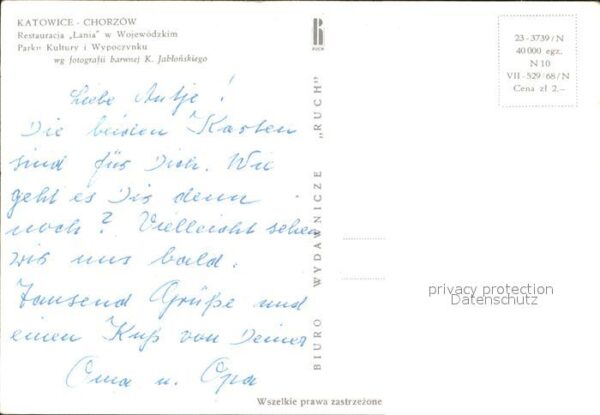 KATOWICE - CHORZÓW
Restauracja „Łania" w Wojewódzkim
Parku Kultury i Wypoczynku
wg fotografii barwnej K. Jabłońskiego
Liebe Antje!
Die beiden Karten
sind für Dich. Wie
geht es Dir denn
noch? Vielleicht sehen
wir uns bald.
Tausend Grüße und
einen Kuß von Deiner
Oma u. Opa
RUCH
BIURO WYDAWNICZE „RUCH"
23-3739/N
40 000 egz.
N 10
VII-529/68/N
Cena zł 2,-
privacy protection
Datenschutz
Wszelkie prawa zastrzeżone